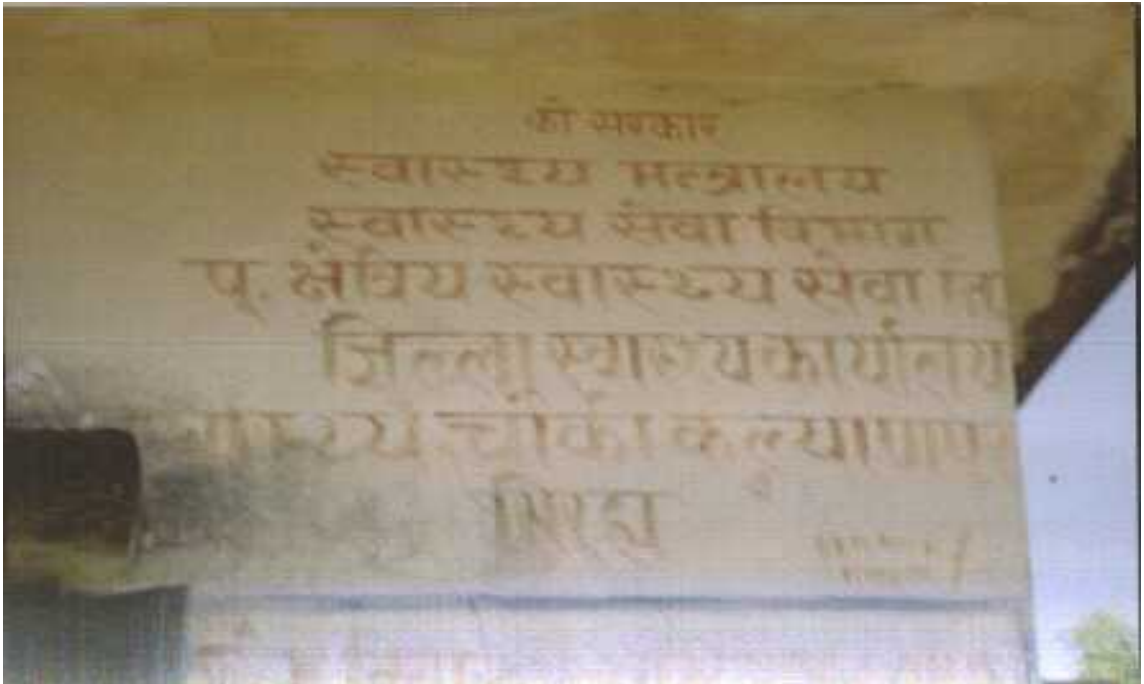 को सरकार
स्वास्थ्य मन्त्रालय
स्वास्थ्य सेवा विभाग
पू. क्षेत्रिय स्वास्थ्य सेवा नि
जिल्ला स्वास्थ्य कार्यालय
स्वास्थ्य चौकी कल्याणपुर
सिरहा